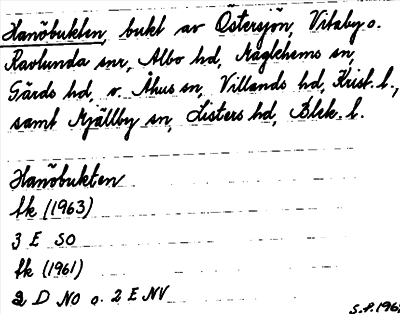 Hanöbukten, bukt av Östersjön, Vitaby o.
Ravlunda snr, Albo hd, Maglehems sn,
Gärds hd, o. Åhus sn, Villands hd, Krist. l.,
samt Mjällby sn, Listers hd, Blek. l.
Hanöbukten
fk (1963)
3 E SO
fk (1961)
2 D NO o. 2 E NV